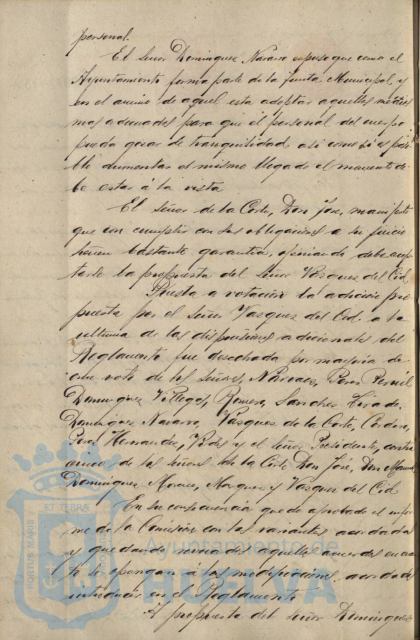 personal.
El Señor Dominguez Navarro expuso que como el
Ayuntamiento forma parte de la Junta Municipal, y
en el animo de aquel esta adoptar aquellas medidas
mas adecuadas para que el personal del cuerpo
pueda gozar de tranquilidad asi como si es posi
ble aumentar el mismo llegado el momento de
be estar á la vista
El Señor de la Corte, Don José, manifestó
que con cumplir con sus obligaciones a su juicio
tienen bastante garantia, opinando debe acep
tarse la propuesta del Señor Vazquez del Cid.
Puesta a votacion la adicion pro
puesta por el Señor Vazquez del Cid a la
ultima de las disposiciones adicionales del
Reglamento fue desechada por mayoria de
once votos de los Señores, Narvaez, Perez
Dominguez Villegas, Romero, Sanchez
Dominguez Navarro, Vazquez de la Corte, Cordero,
Perez Hernandez, y el Señor Presidente, contra
cinco de los Señores de la Corte Don José, Don Manuel
Dominguez Marquez y Vazquez del Cid
En su consecuencia quedó aprobado el infor
me de la Comision con las variantes acordadas
y quedando aquellos acuerdos en cuan
to se opongan á las modificaciones acordadas
introducir en el Reglamento
A propuesta del Señor Dominguez
PORTUS MARIS
ET TERRÆ
Ayuntamiento de
HUELVA